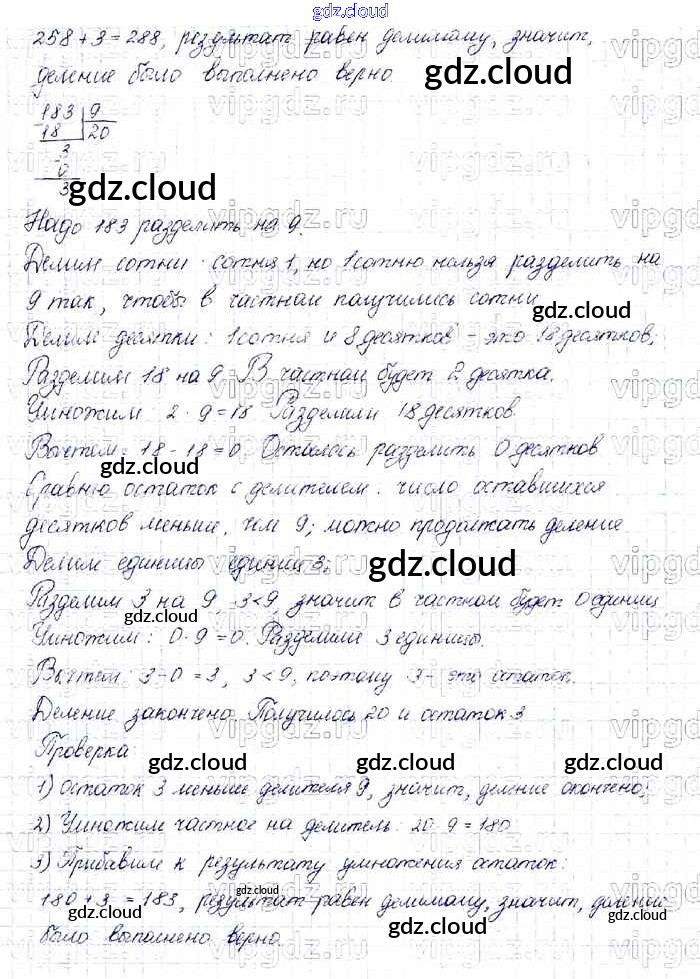 gdz.cloud
258+3=288, результат равен делимому, значит,
деление было выполнено верно
gdz.cloud
183 9
18 20
3
0
3
gdz.cloud
Надо 183 разделить на 9.
Делим сотни. сотня 1, но 1 сотню нельзя разделить на
9 так, чтобы в частном получились сотни
gdz.cloud
Делим десятки: 1 сотня и 8 десятков - это 18 десятков;
Разделим 18 на 9. В частном будет 2 десятка.
gdz.cloud
Умножим 2·9=18 Разделили 18 десятков.
Вычтем: 18-18=0. Осталось разделить 0 десятков
gdz.cloud
Сравню остаток с делителем. число оставшихся
десятков меньше, чем 9; можно продолжать деление.
Делим единицы единиц 3;
gdz.cloud
Разделим 3 на 9, 3<9, значит в частном будет 0 единиц
gdz.cloud
Умножим: 0·9=0. Разделили 3 единицы.
Вычтем: 3-0=3, 3<9, поэтому 3- это остаток.
Деление закончено. Получилось 20 и остаток 3
Проверка
gdz.cloud gdz.cloud gdz.cloud
1) Остаток 3 меньше делителя 9, значит, деление окончено;
2) Умножим частное на делитель: 20·9=180
3) Прибавим к результату умножения остаток:
gdz.cloud
180+3=183, результат равен делимому, значит, деление
gdz.cloud gdz.cloud gdz.cloud
было выполнено верно.